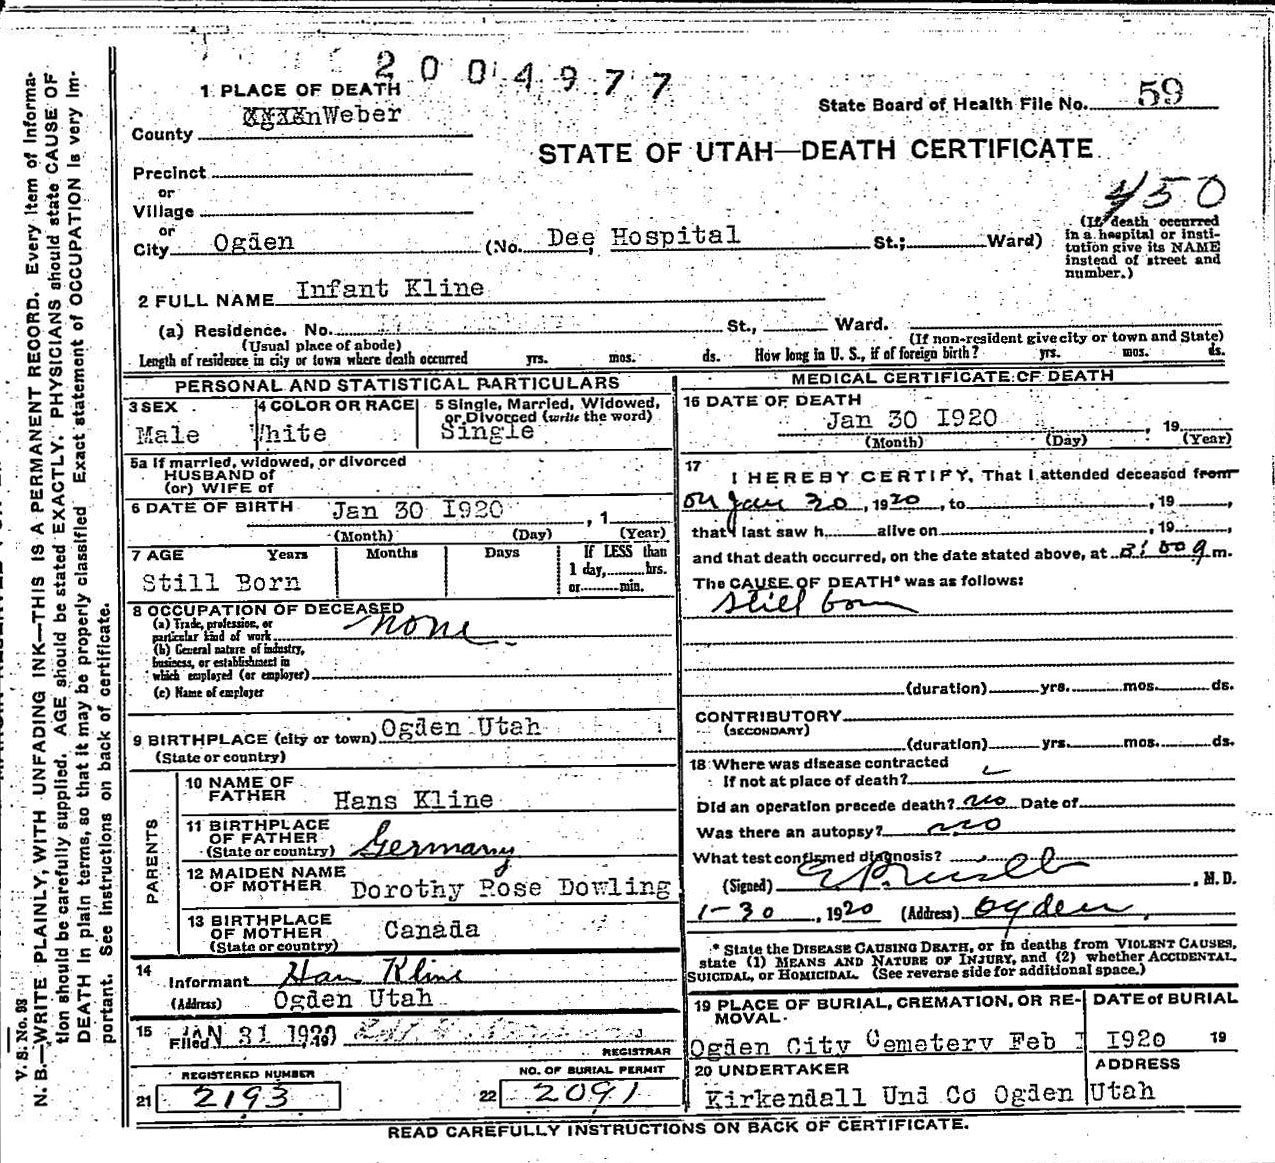 2004977
1 PLACE OF DEATH
State Board of Health File No. 59
County Weber
STATE OF UTAH—DEATH CERTIFICATE
Precinct
or
Village
450
or
City Ogden (No. Dee Hospital St.; Ward)
(If death occurred
in a hospital or insti-
tution give its NAME
instead of street and
number.)
2 FULL NAME Infant Kline
(a) Residence. No. St., Ward.
(Usual place of abode) (If non-resident give city or town and State)
Length of residence in city or town where death occurred yrs. mos. ds. How long in U. S., if of foreign birth? yrs. mos. ds.
PERSONAL AND STATISTICAL PARTICULARS
3 SEX 4 COLOR OR RACE 5 Single, Married, Widowed,
or Divorced (write the word)
Male White Single
5a If married, widowed, or divorced
HUSBAND of
(or) WIFE of
6 DATE OF BIRTH Jan 30 I920 , 1
(Month) (Day) (Year)
7 AGE Years Months Days If LESS than
1 day, hrs.
or min.
Still Born
8 OCCUPATION OF DECEASED
(a) Trade, profession, or
particular kind of work none
(b) General nature of industry,
business, or establishment in
which employed (or employer)
(c) Name of employer
9 BIRTHPLACE (city or town) Ogden Utah
(State or country)
PARENTS
10 NAME OF
FATHER Hans Kline
11 BIRTHPLACE
OF FATHER
(State or country) Germany
12 MAIDEN NAME
OF MOTHER Dorothy Rose Dowling
13 BIRTHPLACE
OF MOTHER Canada
(State or country)
14
Informant Hans Kline
(Address) Ogden Utah
15 Filed JAN 31 1920 , 19
REGISTRAR
REGISTERED NUMBER NO. OF BURIAL PERMIT
21 2193 22 2091
MEDICAL CERTIFICATE OF DEATH
16 DATE OF DEATH
Jan 30 I920 , 19
(Month) (Day) (Year)
17
I HEREBY CERTIFY, That I attended deceased from
on Jan 30, 1920, to , 19
that I last saw h alive on , 19
and that death occurred, on the date stated above, at m.
The CAUSE OF DEATH* was as follows:
Still born
(duration) yrs. mos. ds.
CONTRIBUTORY
(SECONDARY)
(duration) yrs. mos. ds.
18 Where was disease contracted
If not at place of death?
Did an operation precede death? no Date of
Was there an autopsy? no
What test confirmed diagnosis?
(Signed) , M.D.
1-30, 1920 (Address) Ogden
* State the DISEASE CAUSING DEATH, or in deaths from VIOLENT CAUSES,
state (1) MEANS AND NATURE OF INJURY, and (2) whether ACCIDENTAL,
SUICIDAL, OR HOMICIDAL. (See reverse side for additional space.)
19 PLACE OF BURIAL, CREMATION, OR RE-
MOVAL. DATE of BURIAL
Ogden City Cemetery Feb I I920 19
20 UNDERTAKER ADDRESS
Kirkendall Und Co Ogden Utah
READ CAREFULLY INSTRUCTIONS ON BACK OF CERTIFICATE.
V. S. No. 98
N. B.—WRITE PLAINLY, WITH UNFADING INK—THIS IS A PERMANENT RECORD. Every item of informa-
tion should be carefully supplied. AGE should be stated EXACTLY. PHYSICIANS should state CAUSE OF
DEATH in plain terms, so that it may be properly classified. Exact statement of OCCUPATION is very im-
portant. See instructions on back of certificate.